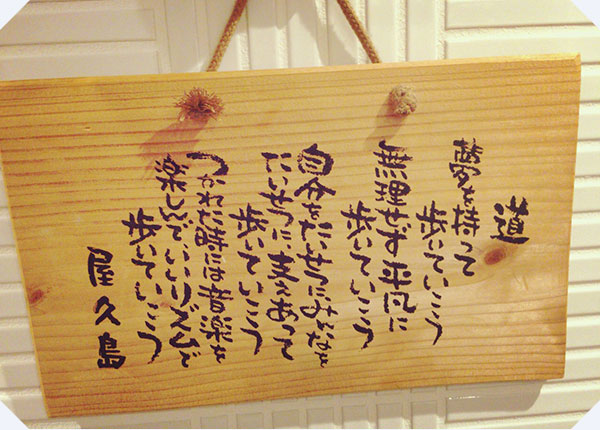 道
夢を持って
歩いていこう
無理せず平凡に
歩いていこう
自分をたいせつにみんなを
たいせつに支えあって
歩いていこう
つかれた時には音楽を
楽しんでいいリズムで
歩いていこう
屋久島